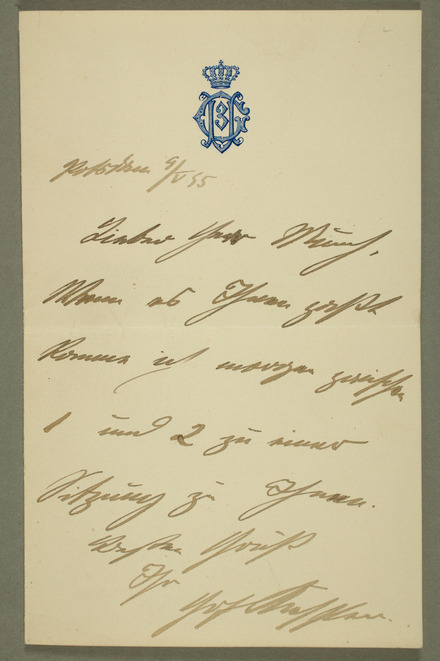 Potsdam 9/V 95
Lieber Herr Munch,
Wenn es Ihnen paßt
komme ich morgen zwischen
1 und 2 zu einer
Sitzung zu Ihnen.
Besten Gruß
Ihr
Kessler.